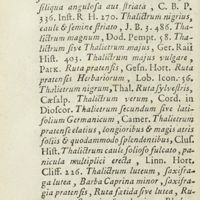 siliqua angulosa aut striata, C. B. P.
336. Inst. R. H. 270. Thalictrum nigrius,
caule & semine striato, J. B. 3. 486. Tha-
lictrum magnum, Dod. Pempt. 58. Tha-
lictrum sive Thalietrum majus, Ger. Raii
Hist. 403. Thalictrum majus vulgare,
Park. Ruta pratensis, Gesn. Hort. Ruta
pratensis Herbariorum, Lob. Icon. 56.
Thalietrum nigrum, Thal. Ruta sylvestris,
Cæsalp. Thalictrum verum, Cord. in
Dioscor. Thalietrum secundum sive lati-
folium Germanicum, Camer. Thalietrum
pratense elatius, longioribus & magis atris
foliis & quodammodo splendentibus, Cluf.
Hist. Thalictrum caule folioso sulcato, pa-
nicula multiplici erecta, Linn. Hort.
Cliff. 226. Thalictrum luteum, saxifra-
ga lutea, Barba Caprina minor, saxifra-
gia pratensis, Ruta fœtida sive lutea, Ru-